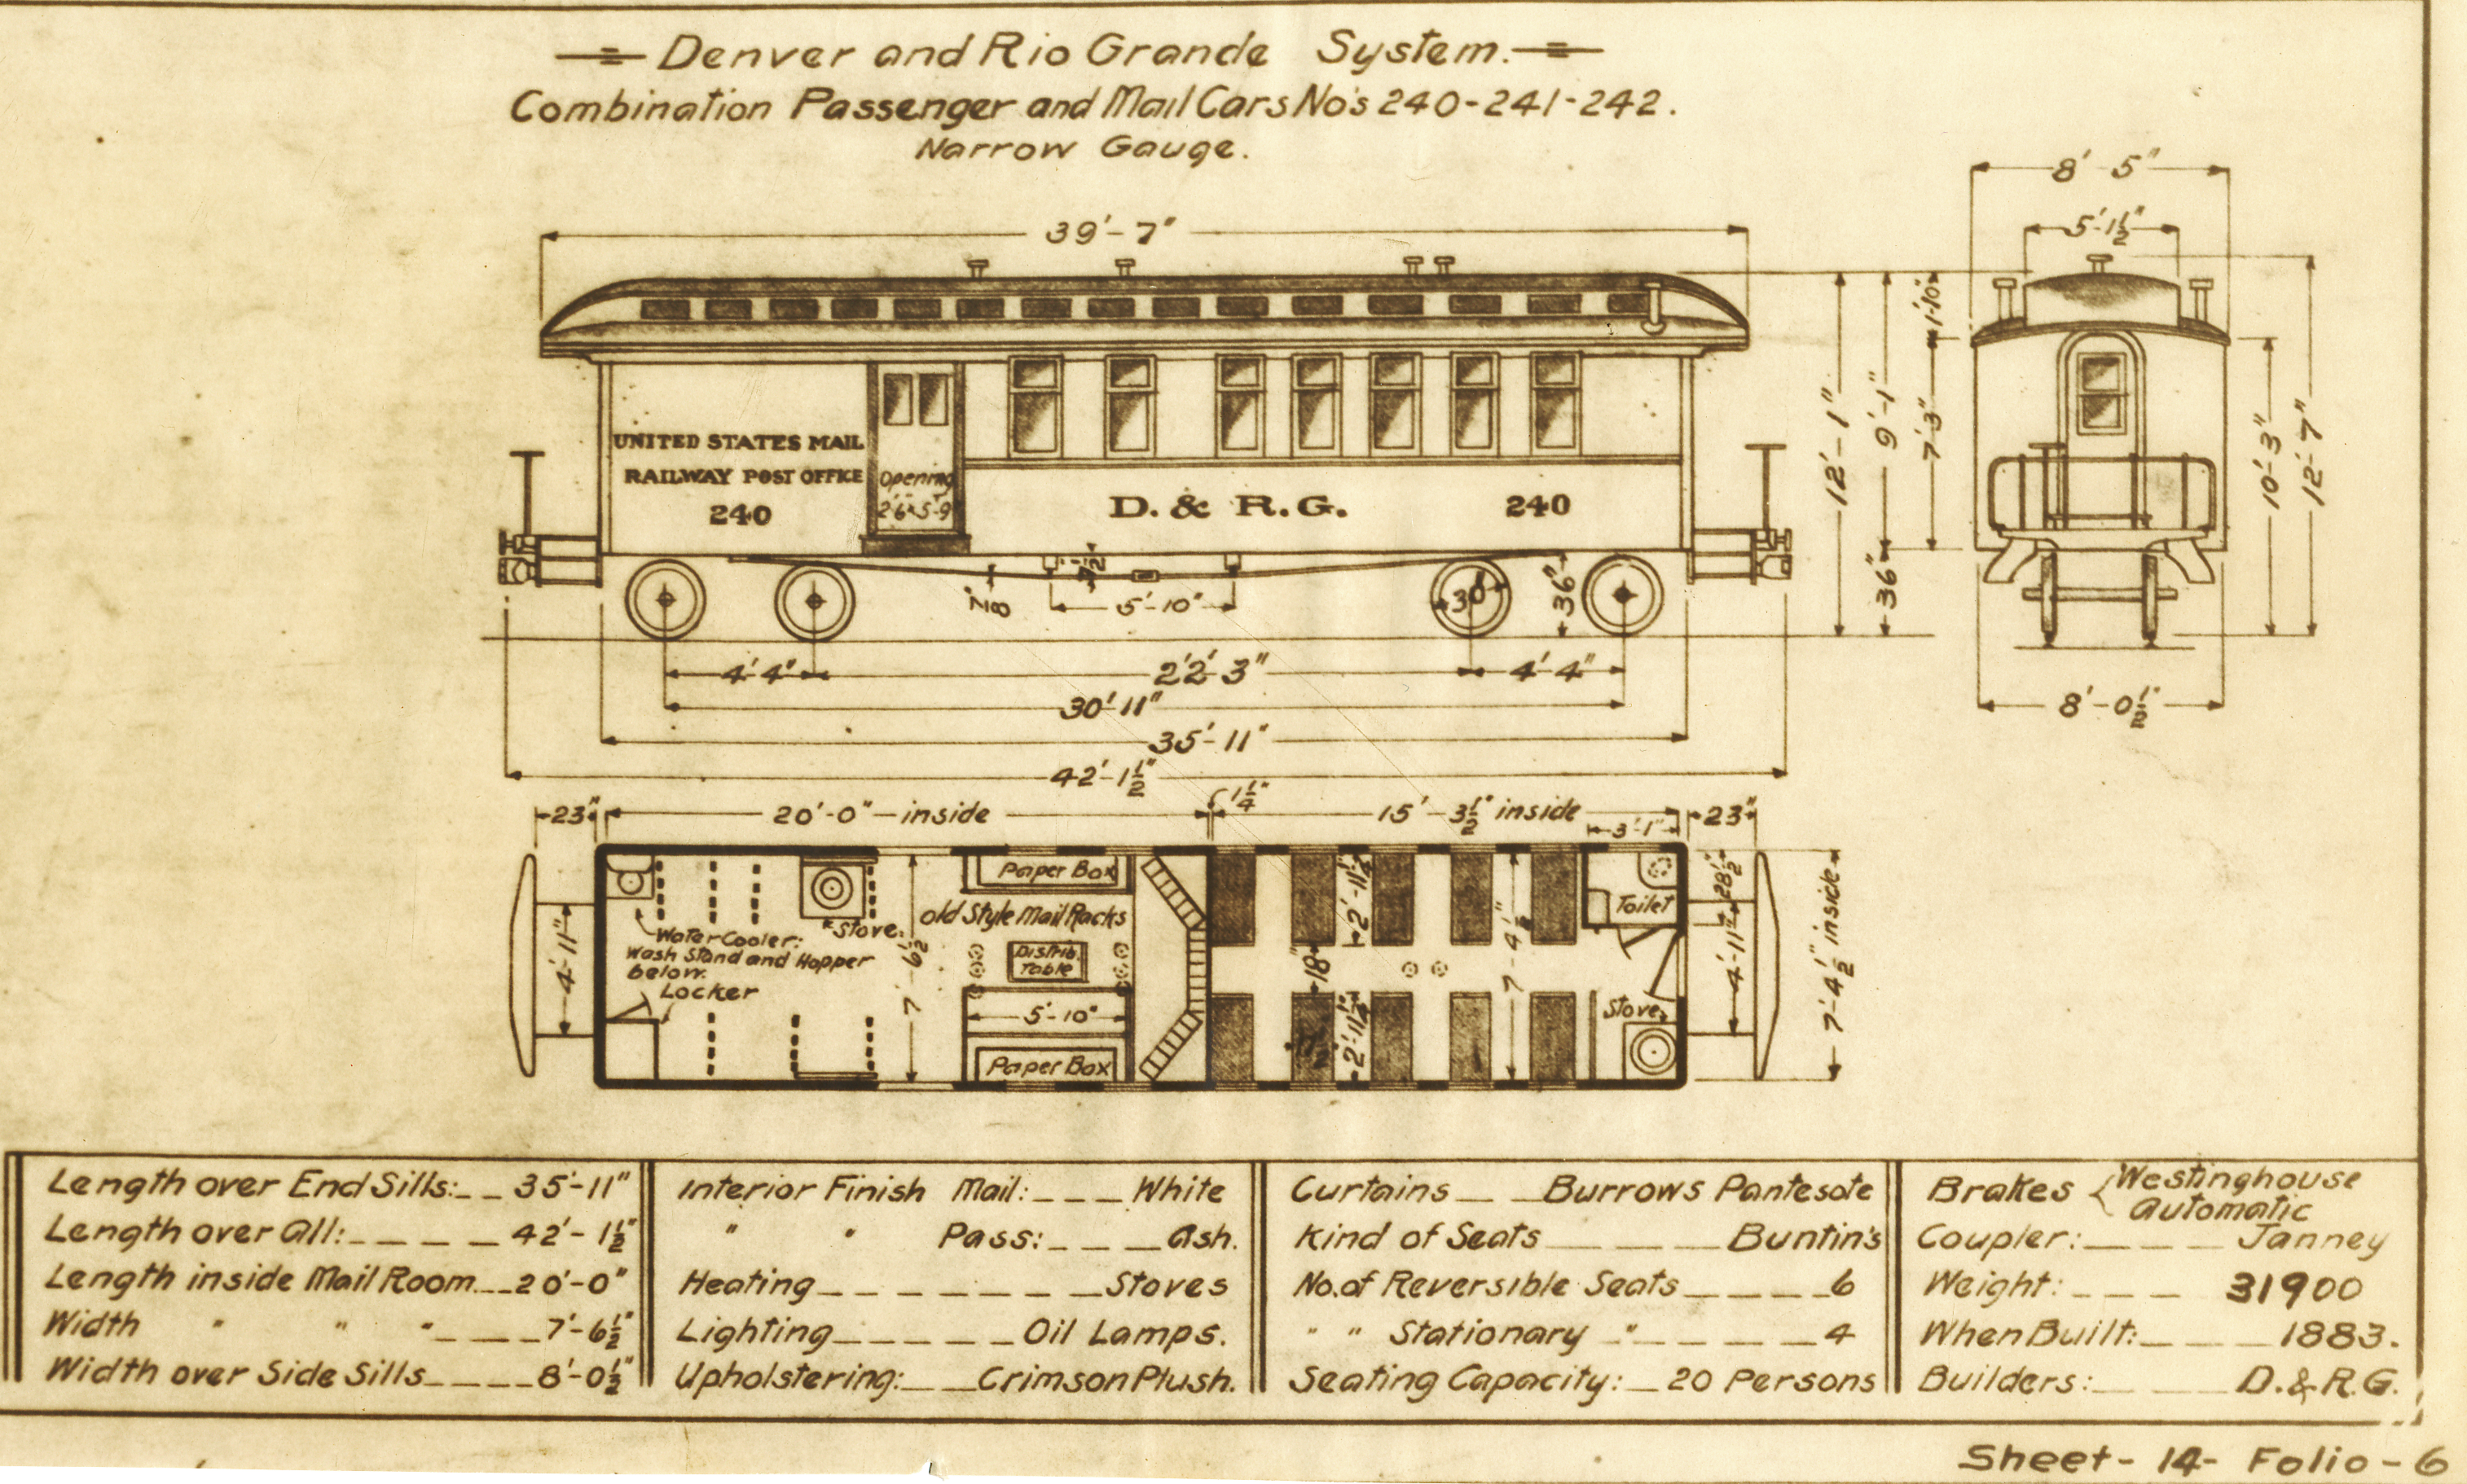 Denver and Rio Grande System.
Combination Passenger and Mail Cars No's 240-241-242.
Narrow Gauge.
8'-5"
5'-1½"
39'-7"
1'-10"
12'-1"
9'-1"
7'-3"
10'-3"
12'-7"
UNITED STATES MAIL
RAILWAY POST OFFICE
240
Opening
2'-6"x5'-9"
D. & R.G.
240
5'-10"
30"
36"
36"
4'-4"
22'-3"
4'-4"
30'-11"
8'-0½"
35'-11"
42'-1½"
23"
20'-0"-inside
1¼"
15'-3½" inside
3'-1"
23"
Paper Box
old Style Mail Racks
Stove.
Water Cooler:
Wash Stand and Hopper
below.
Locker
Distrib.
Table
5'-10"
Paper Box
4'-11"
7'-6½"
2'-11¼"
18"
2'-11¼"
7'-4½"
Toilet
Stove.
28½"
4'-11"
7'-4½" inside
Length over End Sills:__35'-11"
Length over All:____42'-1½"
Length inside Mail Room__20'-0"
Width " " "___7'-6½"
Width over Side Sills____8'-0½"
Interior Finish Mail:___White
" " Pass:___Ash.
Heating_______Stoves
Lighting_____Oil Lamps.
Upholstering:__Crimson Plush.
Curtains__Burrows Pantesote
Kind of Seats____Buntin's
No. of Reversible Seats____6
" " Stationary "_____4
Seating Capacity:_20 Persons
Brakes {Westinghouse
Automatic
Coupler:___Janney
Weight:___31900
When Built:___1883.
Builders:___D.&R.G.
Sheet-14-Folio-6